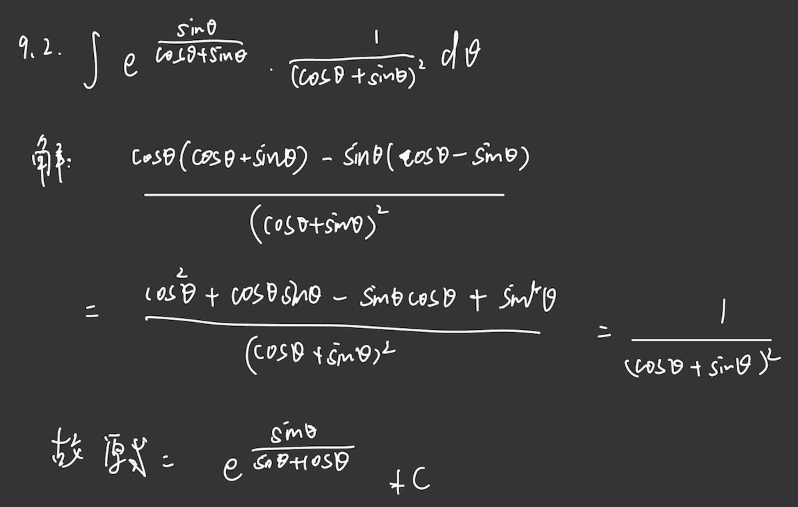 9.2. ∫ e^{\frac{sinθ}{cosθ+sinθ}} · \frac{1}{(cosθ+sinθ)^2} dθ
解: \frac{cosθ(cosθ+sinθ) - sinθ(cosθ-sinθ)}{(cosθ+sinθ)^2}
= \frac{cos^2θ + cosθsinθ - sinθcosθ + sin^2θ}{(cosθ+sinθ)^2} = \frac{1}{(cosθ+sinθ)^2}
故 原式 = e^{\frac{sinθ}{sinθ+cosθ}} + C